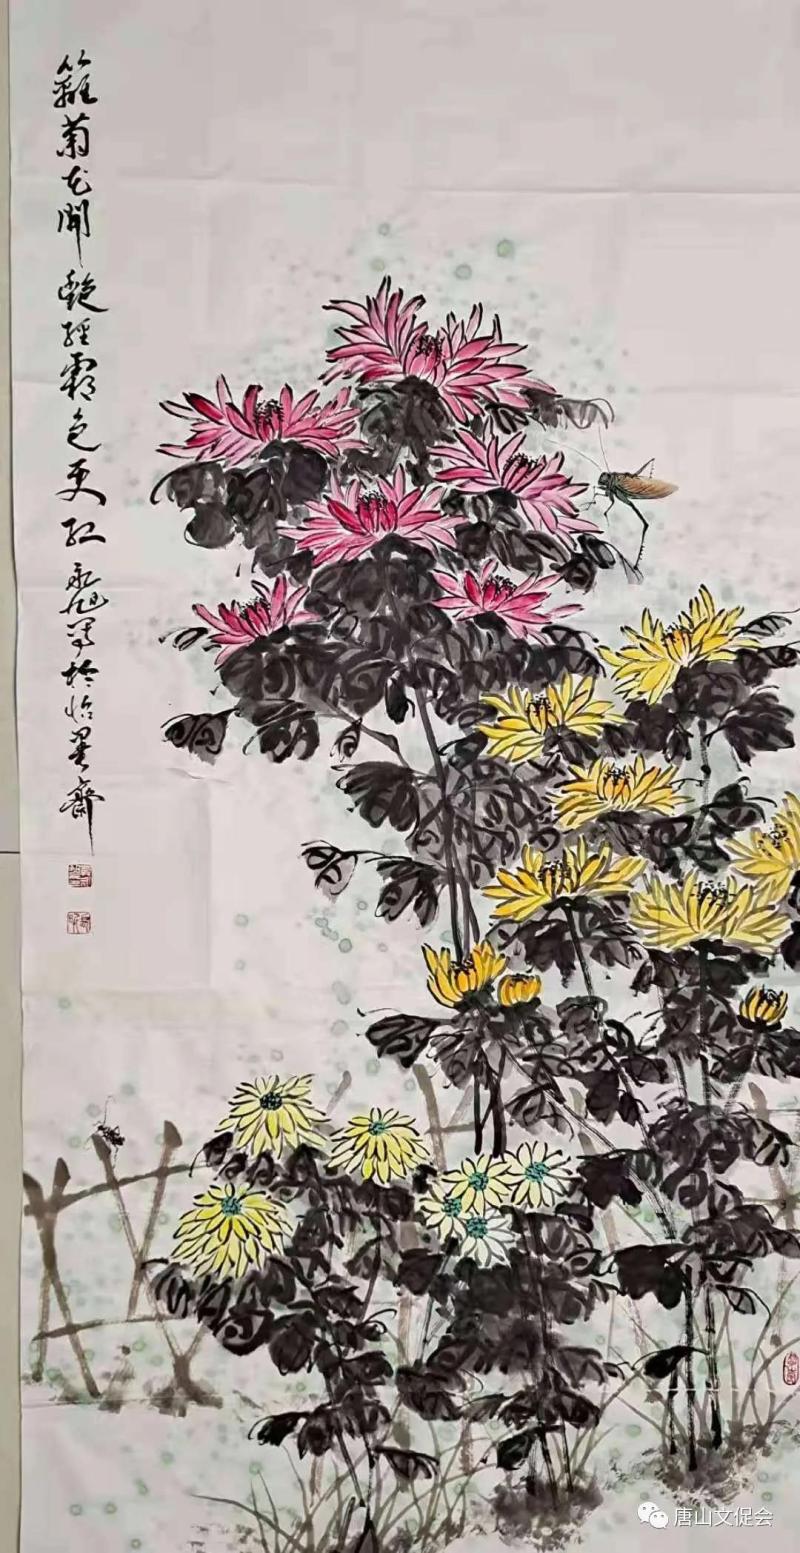 籬菊花開艷經霜色更紅永旭寫於怡墨齋
唐山文促会